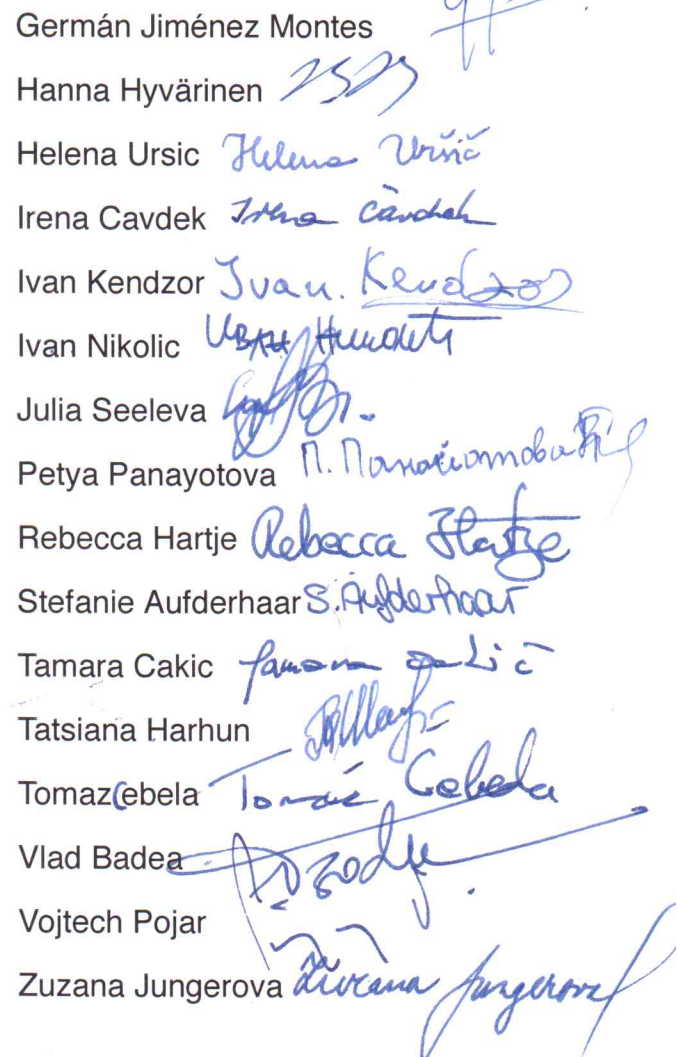 Germán Jiménez Montes
Hanna Hyvärinen
Helena Ursic Helena Uršič
Irena Cavdek Irena Čavdek
Ivan Kendzor Ivan. Kendzor
Ivan Nikolic Иван
Julia Seeleva
Petya Panayotova П. Панайотова
Rebecca Hartje Rebecca Hartje
Stefanie Aufderhaar S. Aufderhaar
Tamara Cakic Tamara
Tatsiana Harhun
TomazCebela Tomaž Cebela
Vlad Badea
Vojtech Pojar
Zuzana Jungerova Zuzana Jungerova